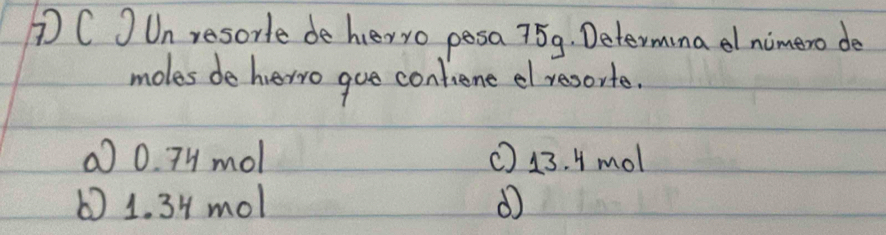 7) ( ) Un resorte de hierro pesa 75g. Determina el número de
moles de hierro que contiene el resorte.
a) 0.74 mol
c) 13.4 mol
b) 1.34 mol
d)